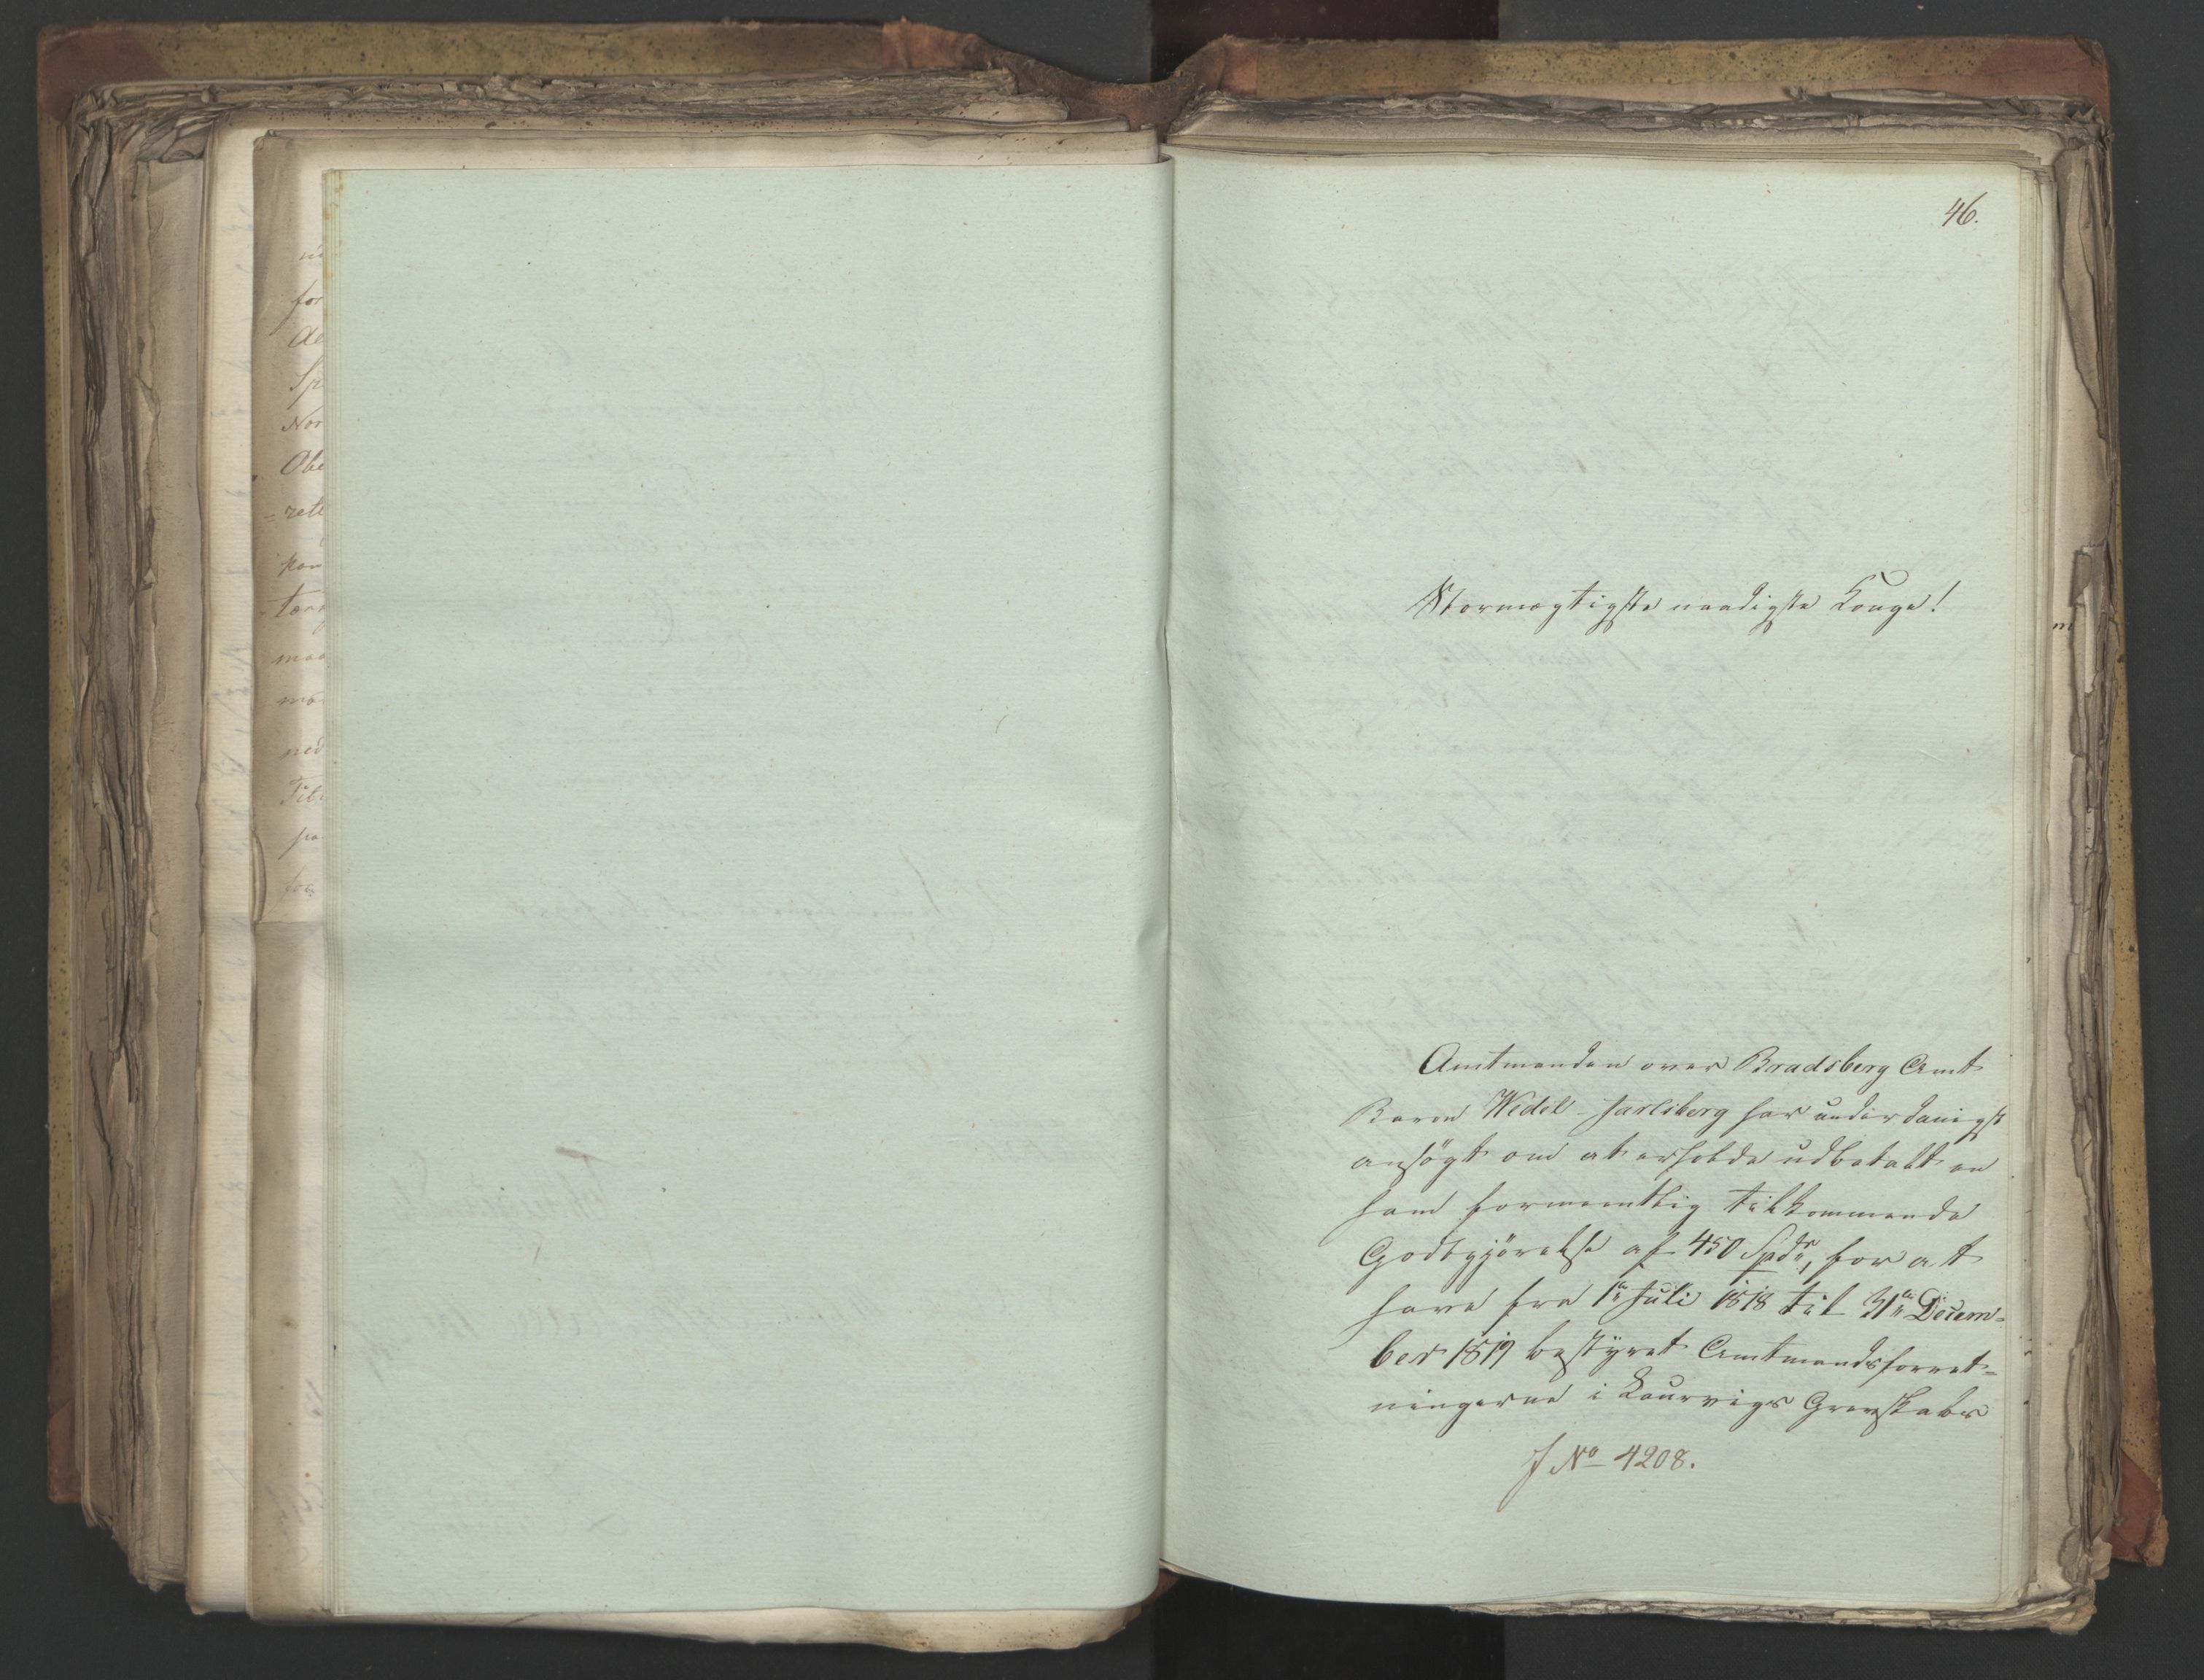 ud
for
Ae
Sp
Nor
Obe
= rett
kon
tæn
maa
mo
ned
Tile
pa
for
46.
Stormægtigste naadigste Konge!
Amtmanden over Bradsberg Amt
Baron Wedel-Jarlsberg har underdanigst
ansögt om at erholde udbetalt en
ham formeentlig tilkommende
Godtgjörelse af 450 Spdr, for at
have fra 1ste Juli 1818 til 31te Decem-
ber 1819 bestyret Amtmandsforret-
ningerne i Laurvigs Grevskabs
J No 4208.